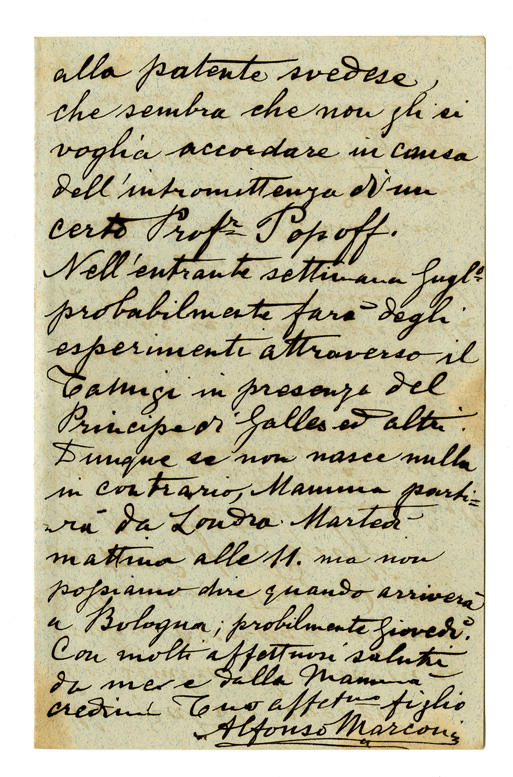 alla patente svedese,
che sembra che non gli si
voglia accordare in causa
dell'intromittenza di un
certo Profr. Popoff.
Nell'entrante settimana Gugl.o
probabilmente farà degli
esperimenti attraverso il
Tamigi in presenza del
Principe di Galles ed altri.
Dunque se non nasce nulla
in contrario, Mamma parti=
rà da Londra Martedì
mattina alle 11. ma non
possiamo dire quando arriverà
a Bologna; probilmente Giovedì.
Con molti affettuosi saluti
da me e dalla Mamma
credimi Tuo affetmo figlio
Alfonso Marconi